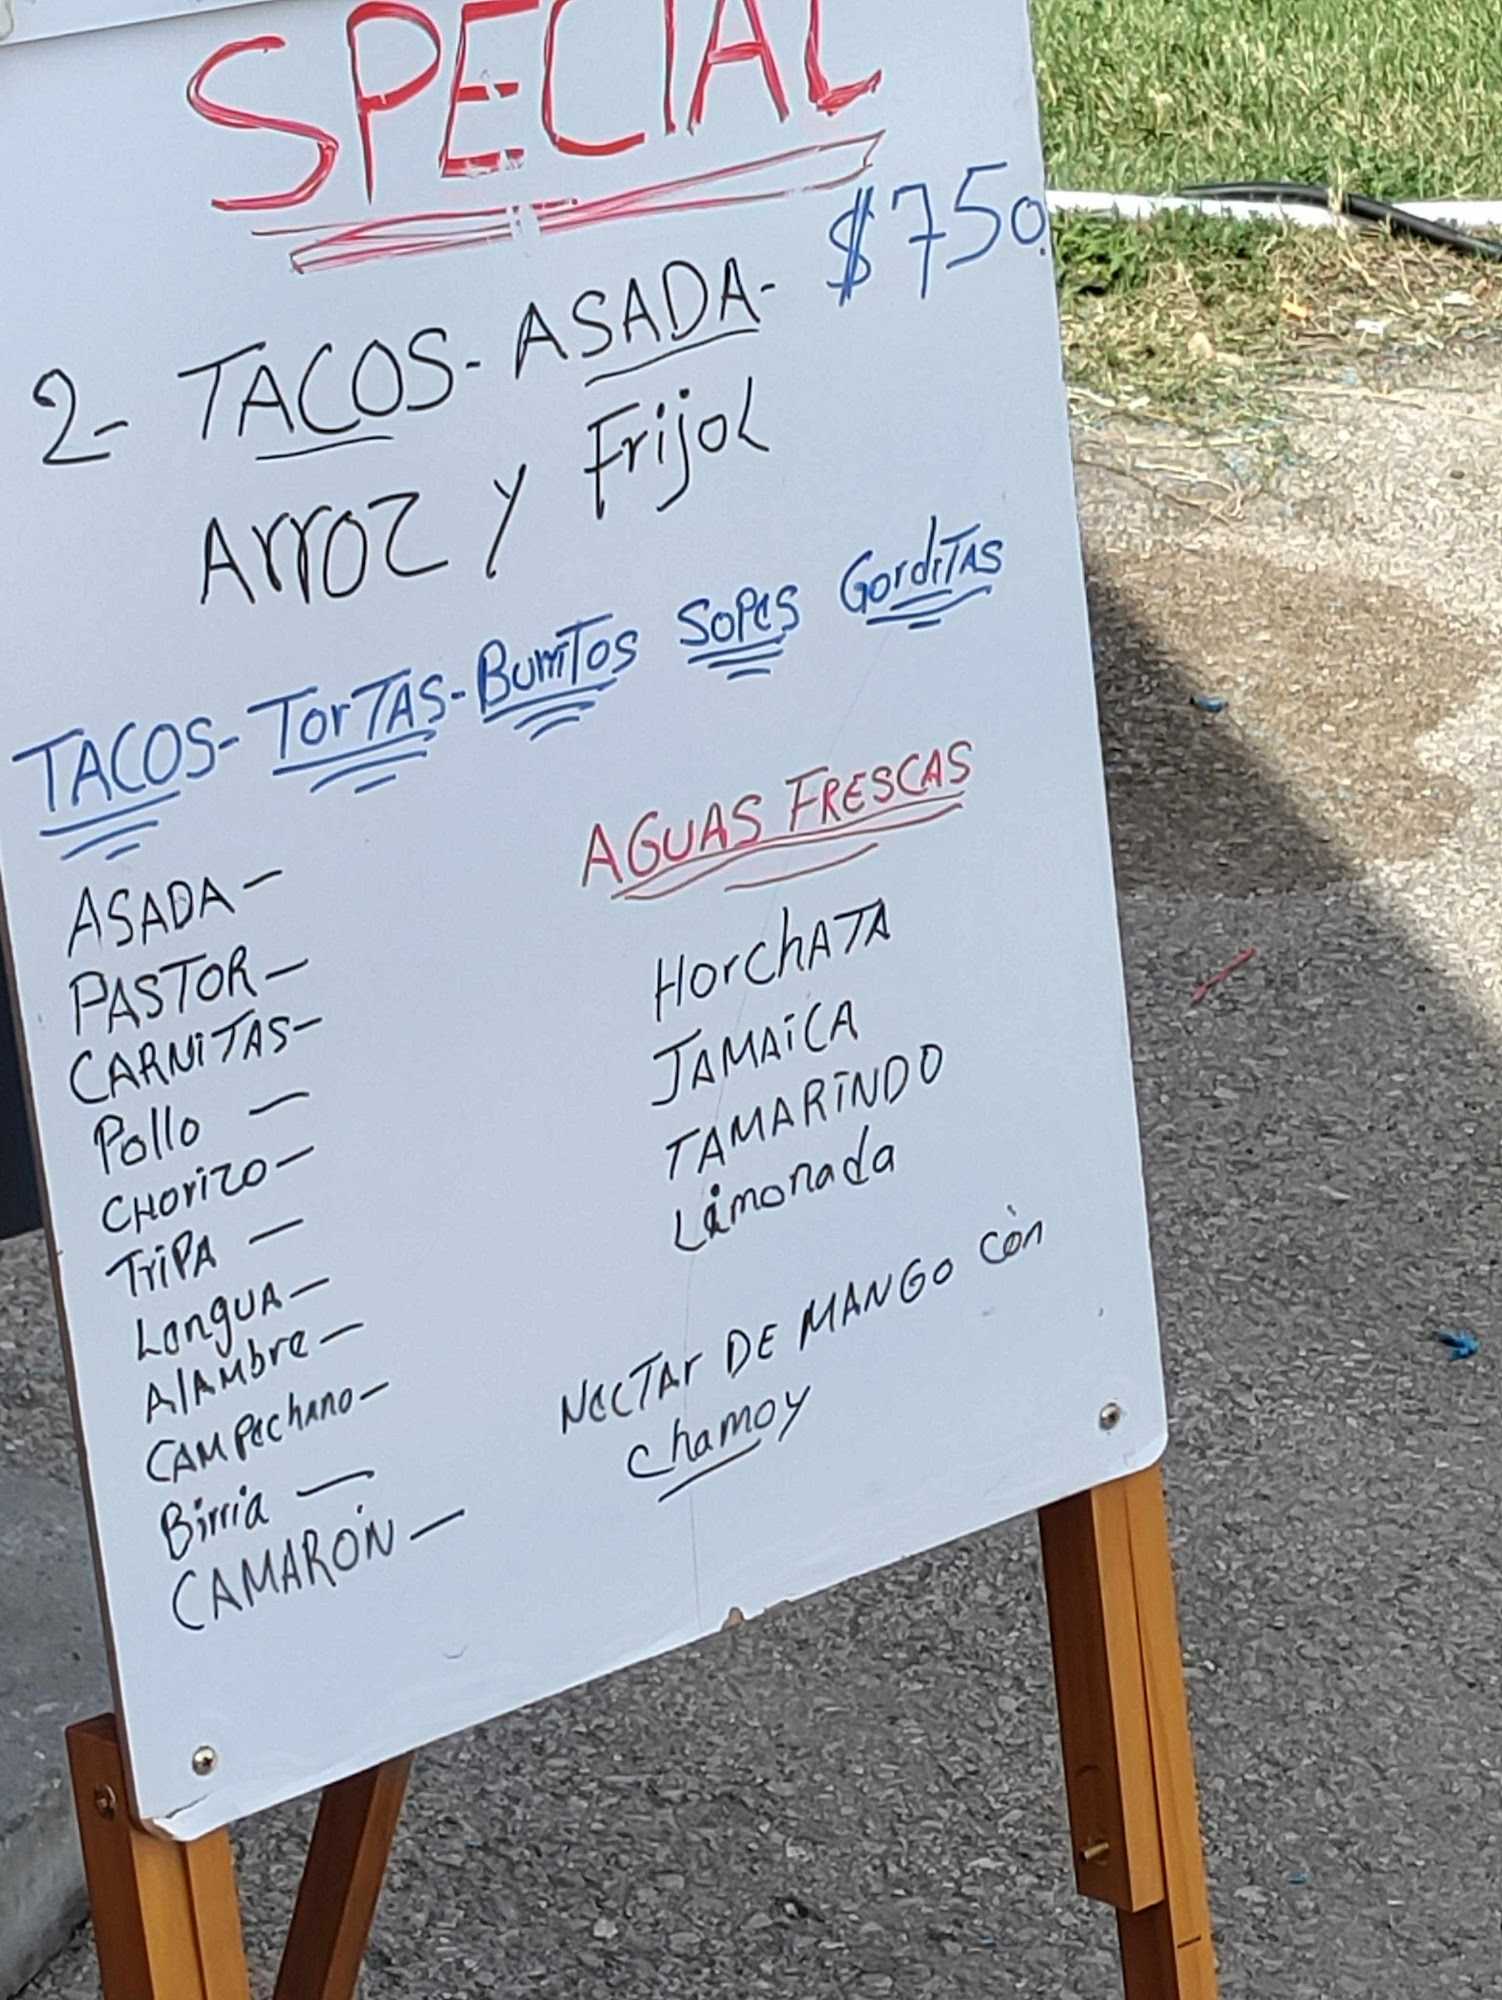 SPECIAL
2- TACOS- ASADA- $750
Arroz y Frijol
TACOS- TORTAS- Burritos SOPES GordiTAS
ASADA-
PASTOR-
CARNiTAS-
Pollo -
CHorizo-
TriPA -
LengUA-
AlAMbre-
CAMPechANO-
Birria -
CAMARÓN -
AGUAS FRESCAS
HorchATA
JAMAiCA
TAMARINDO
Limonada
NeCTAr DE MANGO còn
chamoy